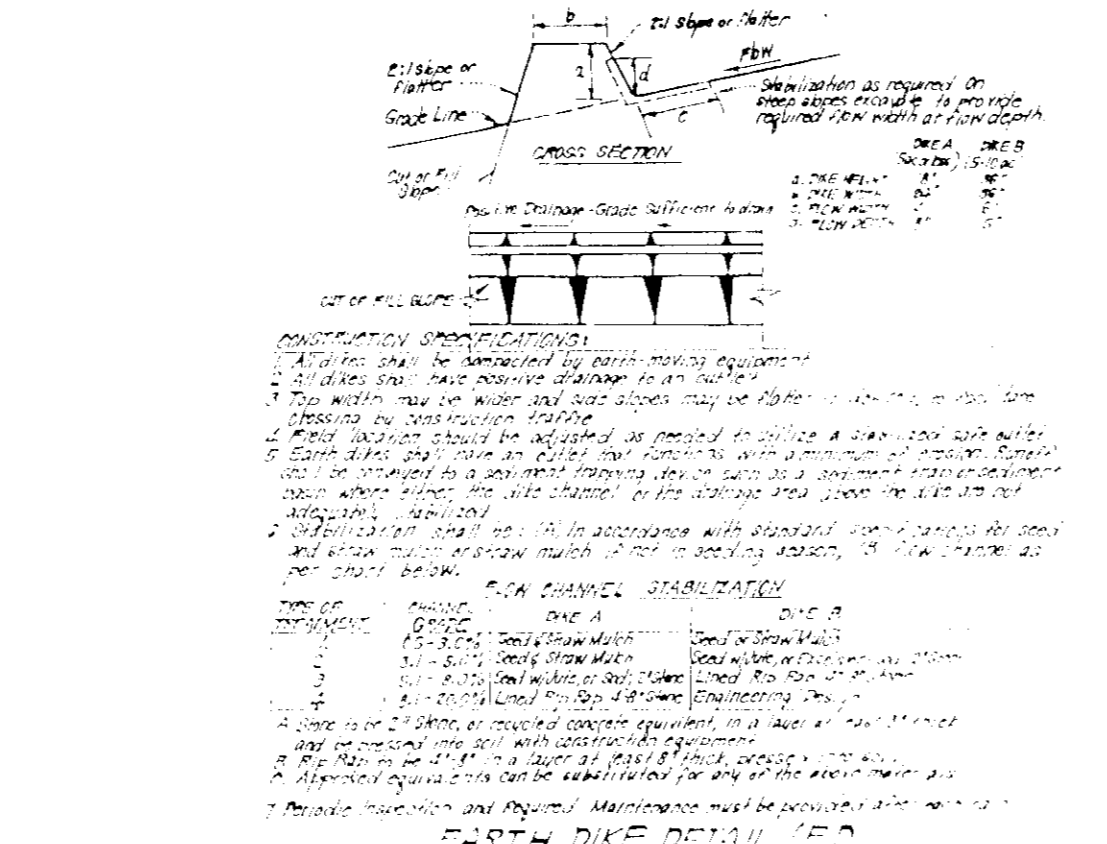 b
2:1 Slope or Flatter
Flow
2:1 Slope or
Flatter
a
d
Grade Line
c
Stabilization as required On
steep slopes excavate to provide
required flow width at flow depth.
CROSS SECTION
Cut or Fill
Slope
DIKE A DIKE B
(5-10 ac)
a. DIKE HEIGHT 18" 36"
b. DIKE WIDTH 36"
c. FLOW WIDTH 6'
d. FLOW DEPTH
Positive Drainage-Grade Sufficient to drain
CUT OF FILL SLOPE
CONSTRUCTION SPECIFICATIONS:
1. All dikes shall be compacted by earth-moving equipment
2 All dikes shall have positive drainage to an outlet
3 Top width may be wider and side slopes may be flatter
crossing by construction traffic
4 Field location should be adjusted as needed to utilize a stabilized safe outlet
5 Earth dikes shall have an outlet that functions with a minimum of erosion. Runoff
shall be conveyed to a sediment trapping device such as a sediment trap or sediment
basin where either the dike channel or the drainage area above the dike are not
adequately stabilized
Stabilization shall be: (A) In accordance with standard specifications for seed
and straw mulch or straw mulch if not in seeding season, (B) flow channel as
per chart below.
FLOW CHANNEL STABILIZATION
TYPE OF TREATMENT CHANNEL GRADE DIKE A DIKE B
.5-3.0% Seed & Straw Mulch Seed or Straw Mulch
2 3.1-5.0% Seed & Straw Mulch Seed w/Jute, or Excelsior
3 5.1-8.0% Seed w/Jute, or Sod; 2" Stone Lined Rip Rap 4"-8"
4 8.1-20.0% Lined Rip Rap 4"-8" Stone Engineering Design
A Stone to be 2" Stone, or recycled concrete equivalent, in a layer at least 3" thick
and be pressed into soil with construction equipment
B. Rip Rap to be 4"-8" in a layer at least 8" thick, pressed into soil.
C. Approved equivalents can be substituted for any of the above materials
7 Periodic Inspection and Required Maintenance must be provided after each rain
EARTH DIKE DETAIL